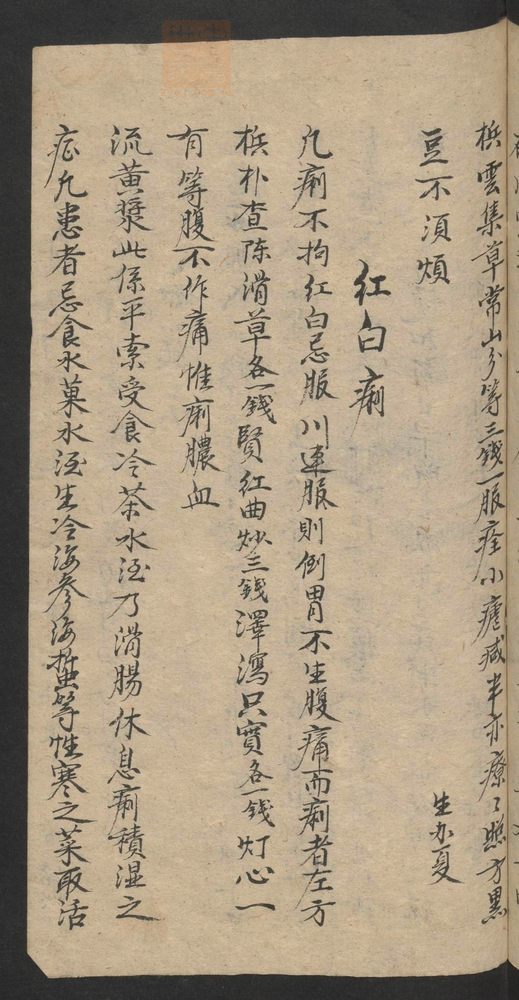 梹雲集草常山分等三錢一服痊小瘧减半亦療〻照方黑
豆不須煩
生办夏
红白痢
凡痢不拘红白忌服川連服則倒胃不生腹痛而痢者左方
梹朴查陈滑草各一錢賢红曲炒三錢澤瀉只實各一錢灯心一
有等腹不作痛惟痢膿血
流黄漿此係平素受食冷茶水洭乃滑腸休息痢積湿之
症凡患者忌食水菓水洭生冷海参海蜇等性寒之菜取活